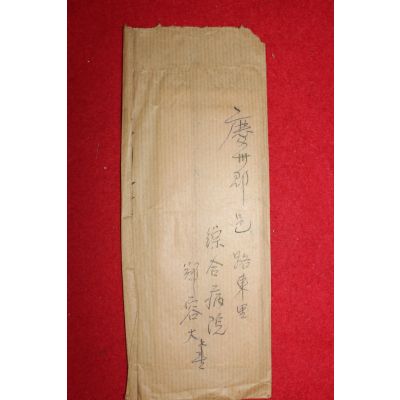 慶州郡 邑 路東里
綜合病院
鄭蓉大